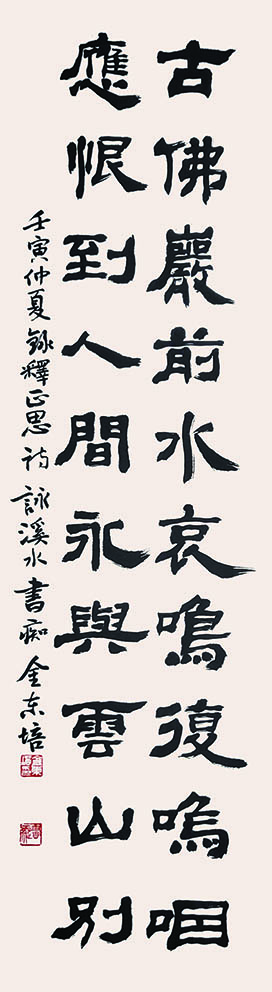 古佛巖前水哀鳴復嗚咽
應恨到人間永與雲山別
壬寅仲夏錄釋正思詩詠溪水書痴金东培